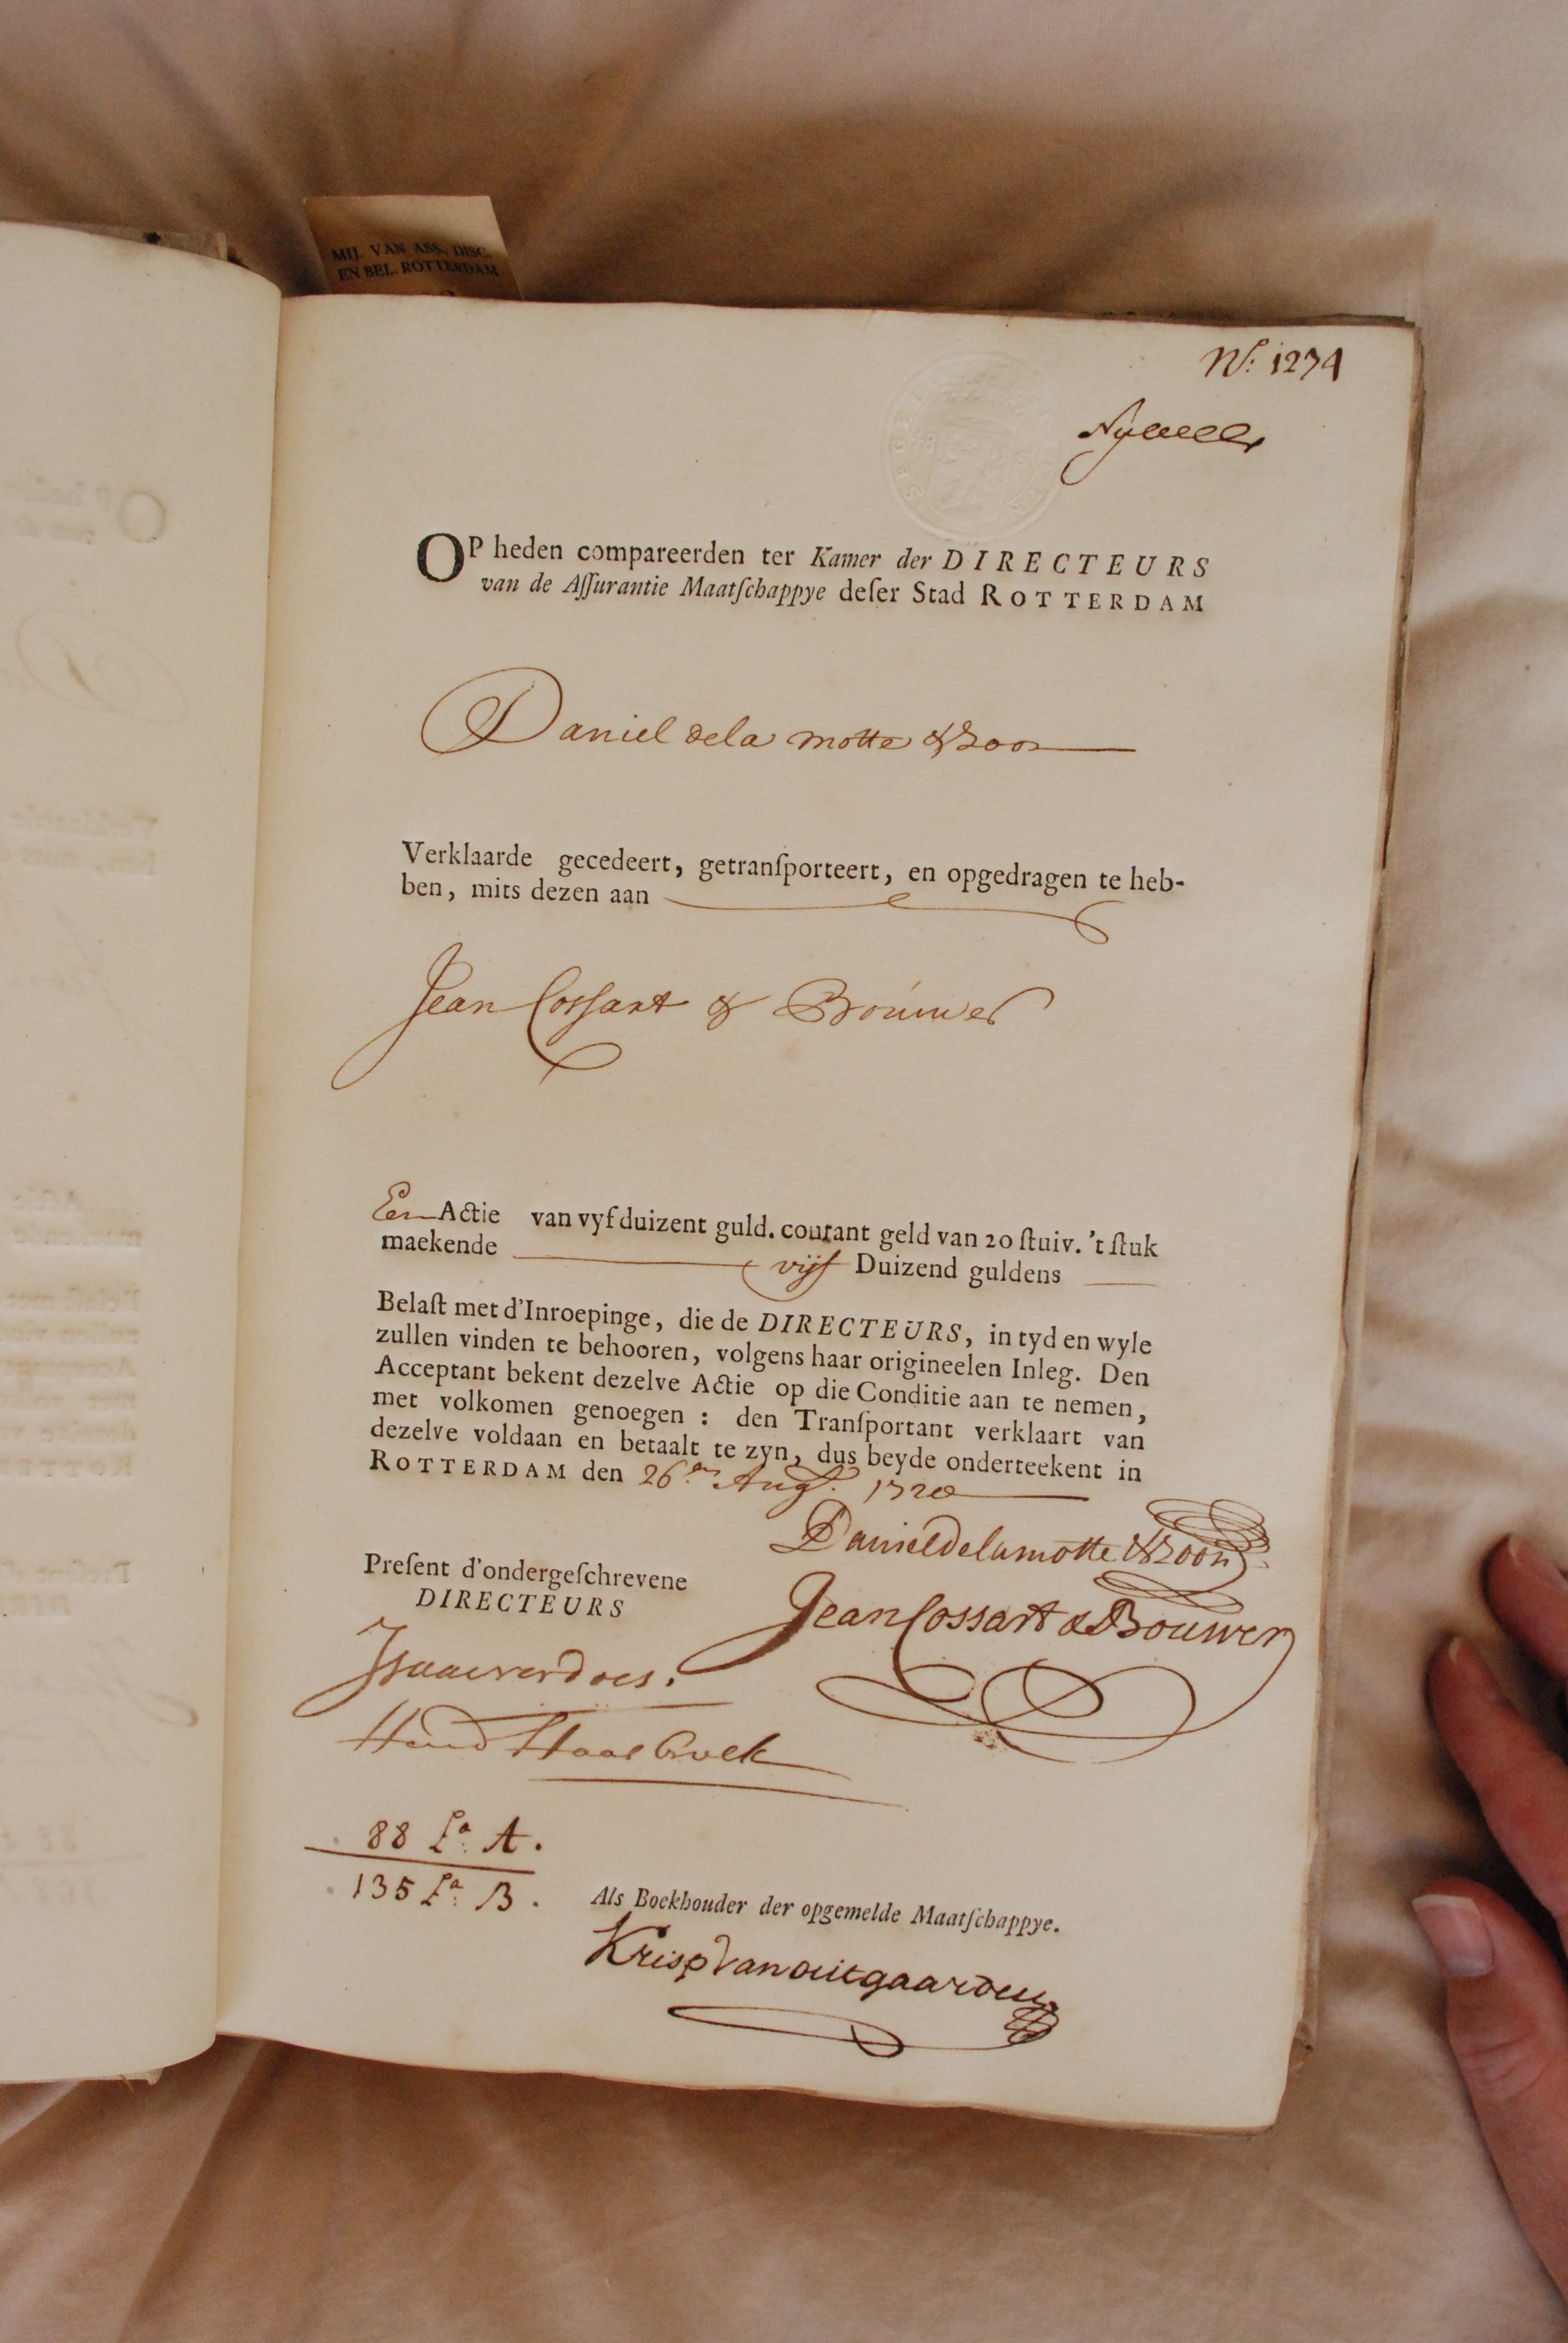 MIJ. VAN ASS., DISC.
EN BEL. ROTTERDAM
No: 1274
OP heden compareerden ter Kamer der DIRECTEURS
van de Aſſurantie Maatſchappye deſer Stad ROTTERDAM
Daniel de la motte & Zoon
Verklaarde gecedeert, getranſporteert, en opgedragen te heb-
ben, mits dezen aan
Jean Coſsart & Bouwer
Een Actie van vyf duizent guld. courant geld van 20 ſtuiv. 't ſtuk
maekende vijf Duizend guldens
Belaſt met d'Inroepinge, die de DIRECTEURS, in tyd en wyle
zullen vinden te behooren, volgens haar origineelen Inleg. Den
Acceptant bekent dezelve Actie op die Conditie aan te nemen,
met volkomen genoegen : den Tranſportant verklaart van
dezelve voldaan en betaalt te zyn, dus beyde onderteekent in
ROTTERDAM den 26en Augt. 1720
Daniel de la motte & Zoon
Preſent d'ondergeſchrevene
DIRECTEURS
Jean Cossart & Bouwer
Isaac verdoes.
88 La. A.
135 La. B.
Als Boekhouder der opgemelde Maatſchappye.
Krisp Van outgaarden